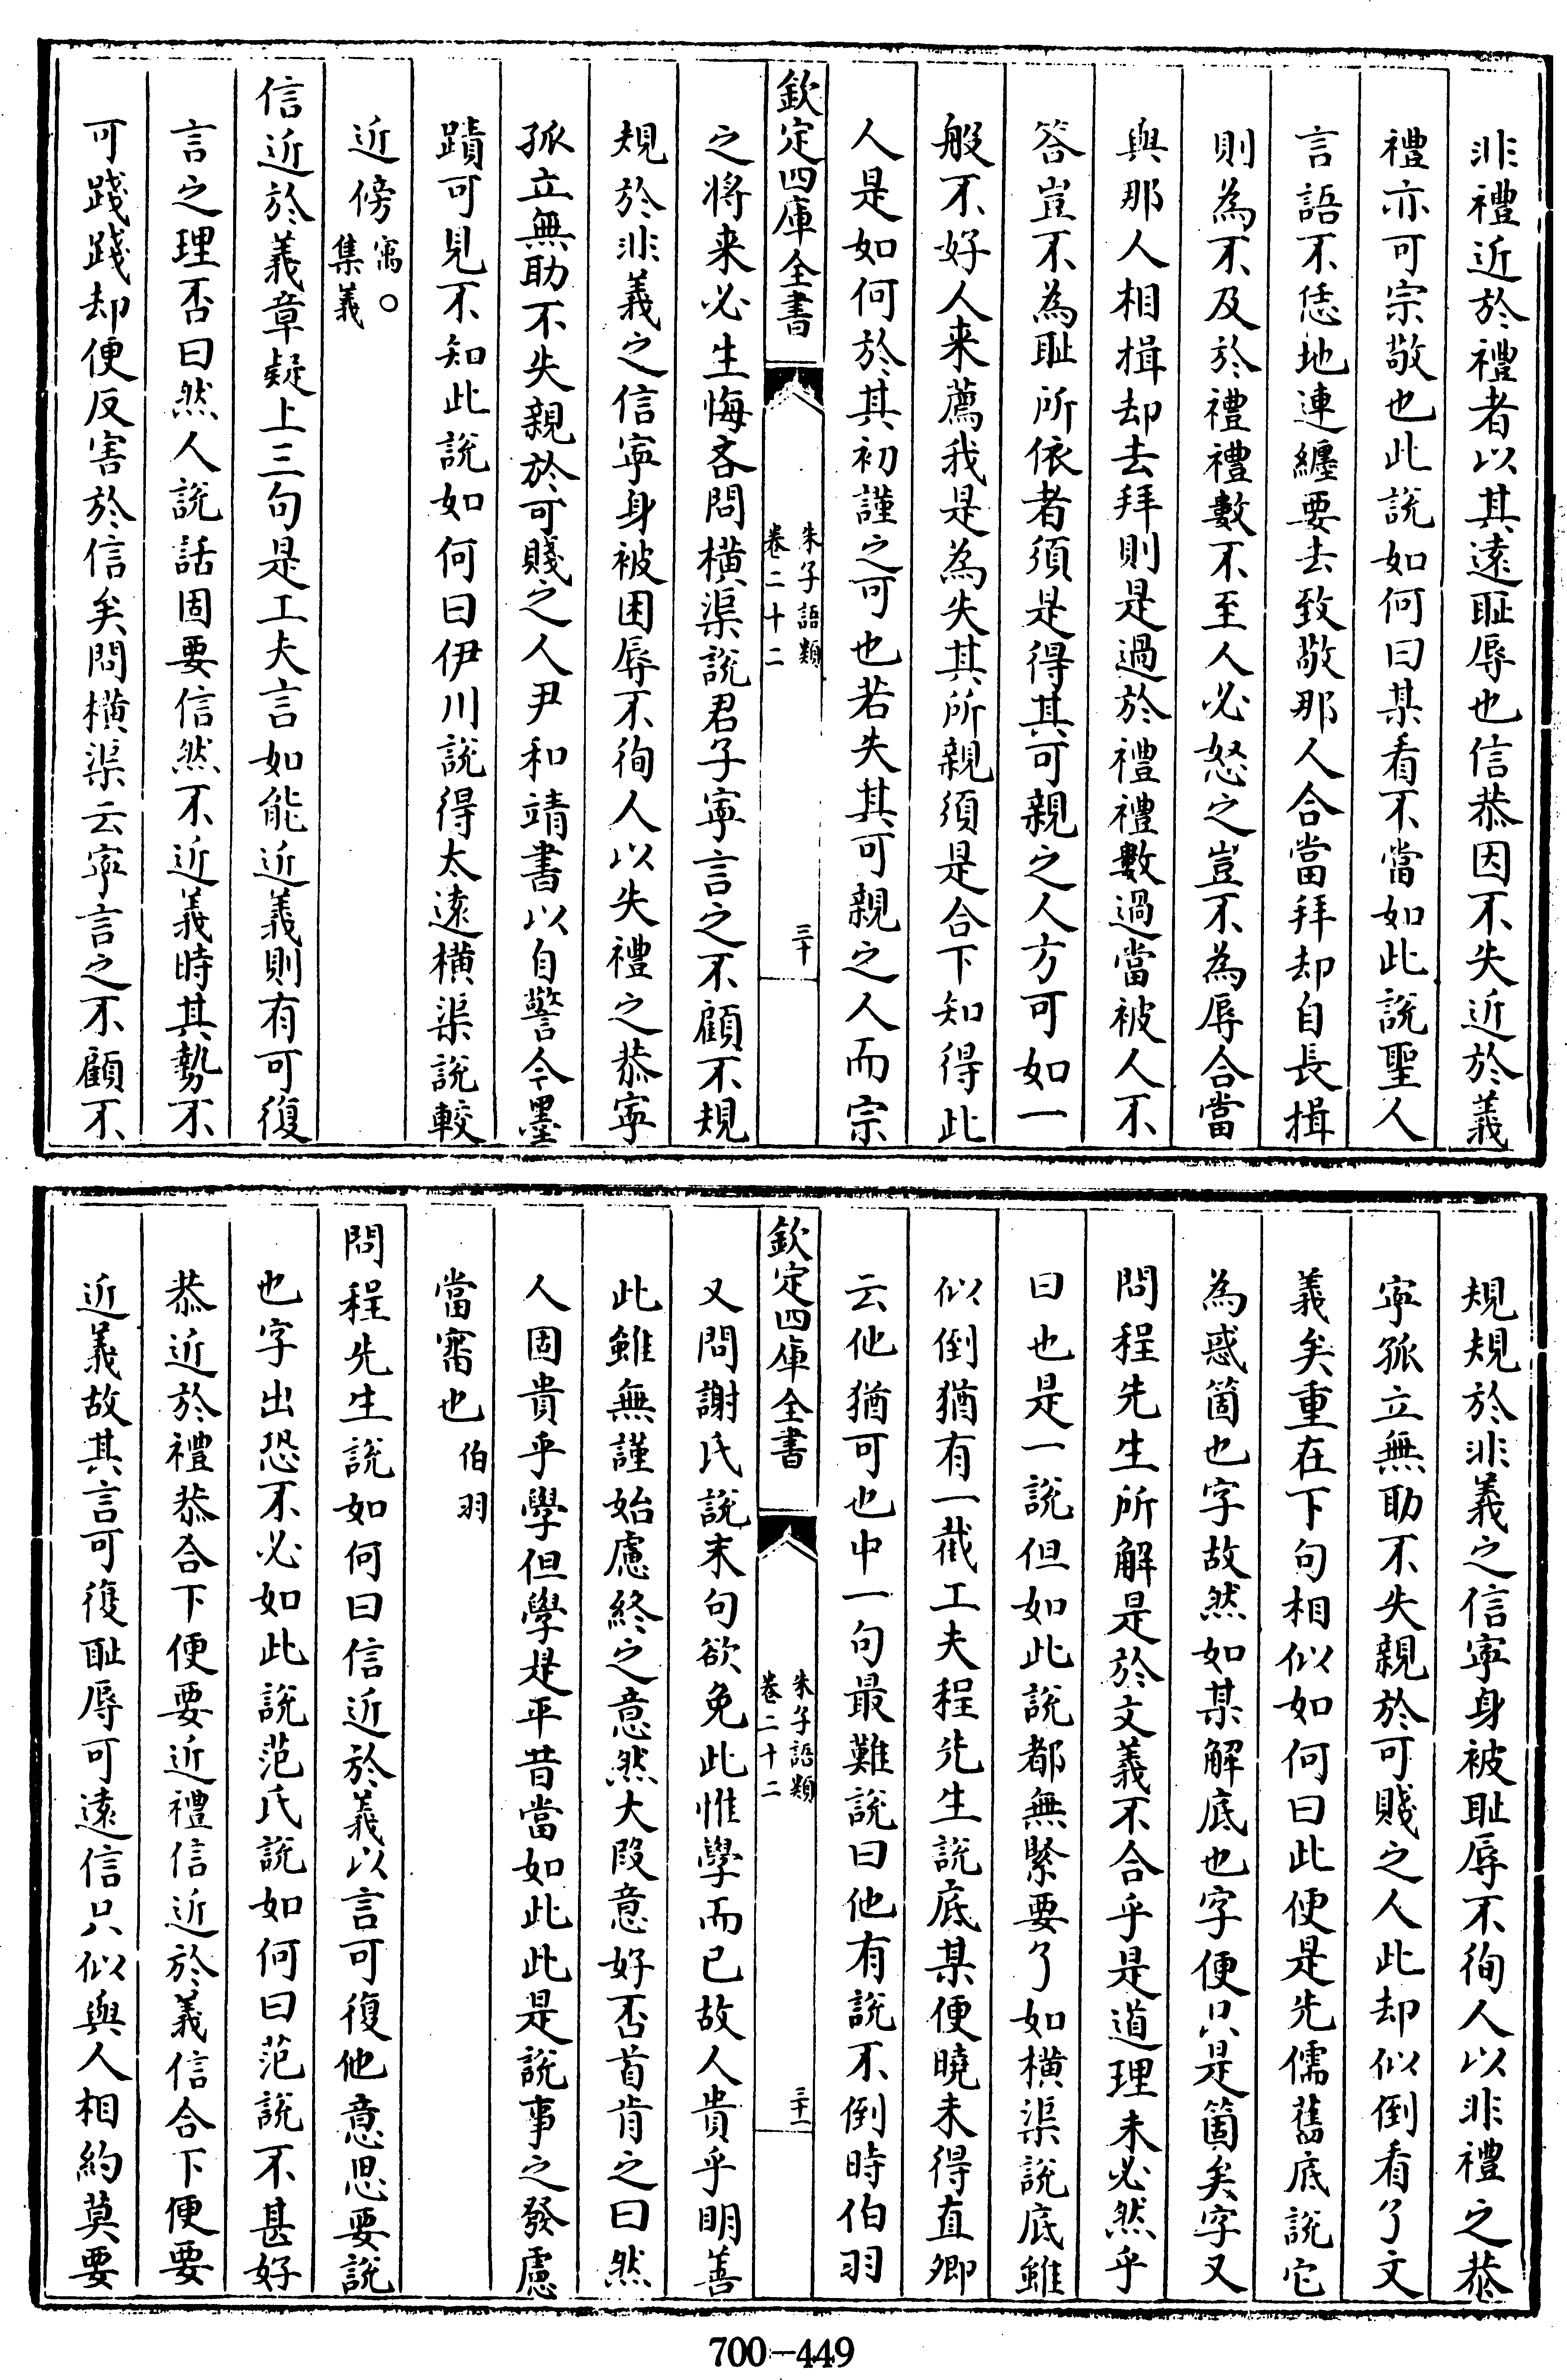 非禮近於禮者以其遠恥辱也信恭因不失近於義
禮亦可宗敬也此說如何曰某看不當如此說聖人
言語不恁地連纏要去致敬那人合當拜却自長揖
則為不及於禮禮數不至人必怒之豈不為辱合當
與那人相揖却去拜則是過於禮禮數過當被人不
答豈不為恥所依者須是得其可親之人方可如一
般不好人来薦我是為失其所親須是合下知得此
人是如何於其初謹之可也若失其可親之人而宗
欽定四庫全書
朱子語類
卷二十二
三十
之將来必生悔吝問橫渠說君子寧言之不顧不規
規於非義之信寧身被困辱不徇人以失禮之恭寧
孤立無助不失親於可賤之人尹和靖書以自警今墨
蹟可見不知此說如何曰伊川說得太遠橫渠說較
近傍寓○
集義
信近於義章疑上三句是工夫言如能近義則有可復
言之理否曰然人說話固要信然不近義時其勢不
可踐踐却便反害於信矣問橫渠云寧言之不顧不
規規於非義之信寧身被恥辱不徇人以非禮之恭
寧孤立無助不失親於可賤之人此却似倒看了文
義矣重在下句相似如何曰此便是先儒舊底說它
為惑箇也字故然如某解底也字便只是箇矣字又
問程先生所解是於文義不合乎是道理未必然乎
曰也是一說但如此說都無緊要了如橫渠說底雖
似倒猶有一截工夫程先生說底某便曉未得直卿
云他猶可也中一句最難說曰他有說不倒時伯羽
欽定四庫全書
朱子語類
卷二十二
三十一
又問謝氏說末句欲免此惟學而已故人貴乎明善
此雖無謹始慮終之意然大段意好否首肯之曰然
人固貴乎學但學是平昔當如此此是說事之發慮
當審也伯羽
問程先生說如何曰信近於義以言可復他意思要說
也字出恐不必如此說范氏說如何曰范說不甚好
恭近於禮恭合下便要近禮信近於義信合下便要
近義故其言可復恥辱可遠信只似與人相約莫要
700-449